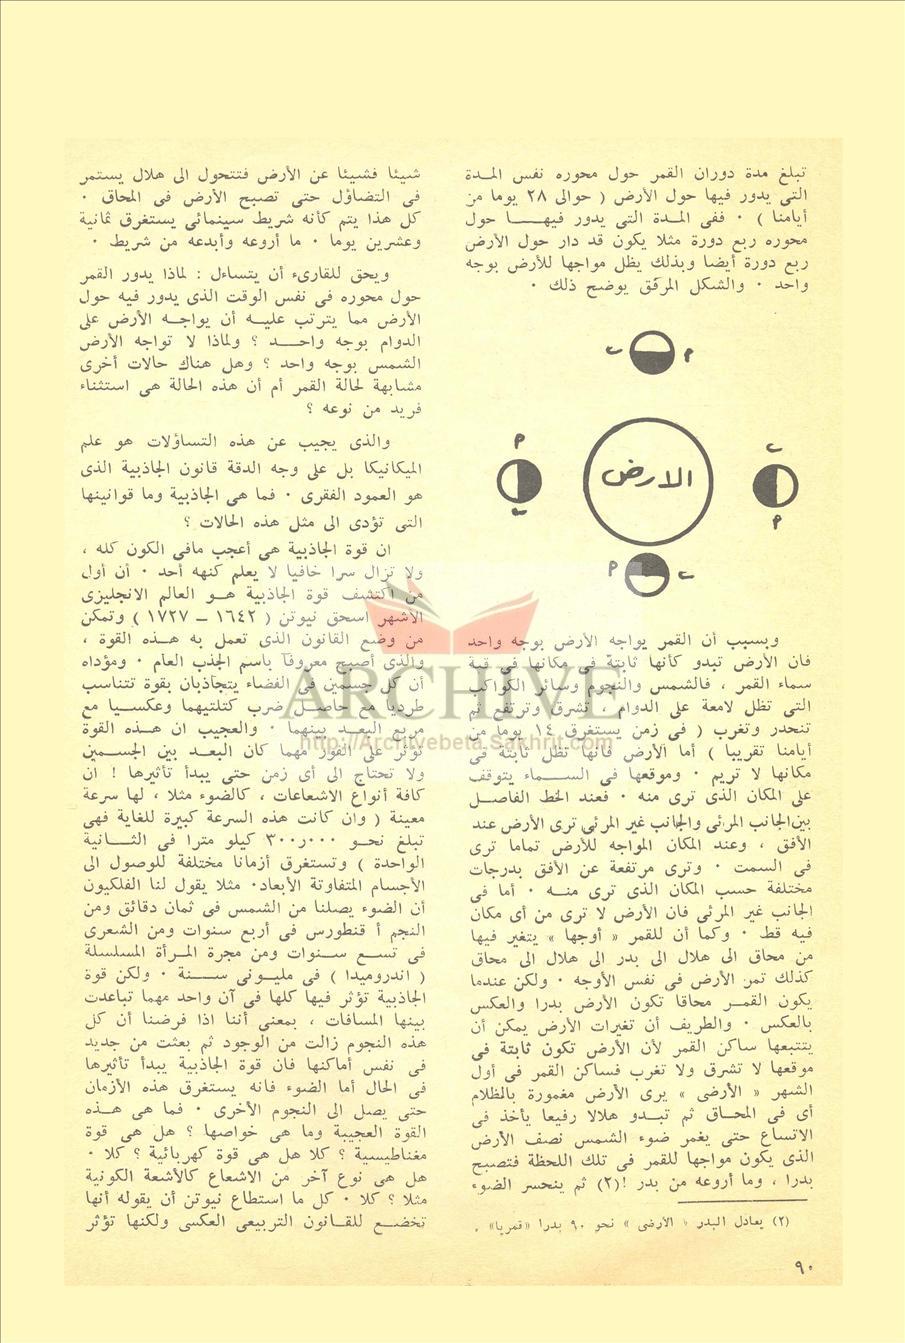 تبلغ مدة دوران القمر حول محوره نفس المدة
التى يدور فيها حول الأرض ( حوالى ٢٨ يوما من
أيامنا ) ٠ ففى المدة التى يدور فيها حول
محوره ربع دورة مثلا يكون قد دار حول الأرض
ربع دورة أيضا وبذلك يظل مواجها للأرض بوجه
واحد ٠ والشكل المرفق يوضح ذلك ٠
ب م
م ب
الارض
ب م
م ب
وبسبب أن القمر يواجه الأرض بوجه واحد
فان الأرض تبدو كأنها ثابتة فى مكانها فى قبة
سماء القمر ، فالشمس والنجوم وسائر الكواكب
التى تظل لامعة على الدوام ، تشرق وترتفع ثم
تنحدر وتغرب ( فى زمن يستغرق ١٤ يوما من
أيامنا تقريبا ) أما الأرض فانها تظل ثابتة فى
مكانها لا تريم ٠ وموقعها فى السماء يتوقف
على المكان الذى ترى منه ٠ فعند الخط الفاصل
بين الجانب المرئى والجانب غير المرئى ترى الأرض عند
الأفق ، وعند المكان المواجه للأرض تماما ترى
فى السمت ٠ وترى مرتفعة عن الأفق بدرجات
مختلفة حسب المكان الذى ترى منه ٠ أما فى
الجانب غير المرئى فان الأرض لا ترى من أى مكان
فيه قط ٠ وكما أن للقمر « أوجها » يتغير فيها
من محاق الى هلال الى بدر الى هلال الى محاق
كذلك تمر الأرض فى نفس الأوجه ٠ ولكن عندما
يكون القمر محاقا تكون الأرض بدرا والعكس
بالعكس ٠ والطريف أن تغيرات الأرض يمكن أن
يتتبعها ساكن القمر لأن الأرض تكون ثابتة فى
موقعها لا تشرق ولا تغرب فساكن القمر فى أول
الشهر « الأرضى » يرى الأرض مغمورة بالظلام
أى فى المحاق ثم تبدو هلالا رفيعا يأخذ فى
الاتساع حتى يغمر ضوء الشمس نصف الأرض
الذى يكون مواجها للقمر فى تلك اللحظة فتصبح
بدرا ، وما أروعه من بدر !(٢) ثم ينحسر الضوء
(٢) يعادل البدر « الأرضى » نحو ٩٠ بدرا «قمريا» ٠
شيئا فشيئا عن الأرض فتتحول الى هلال يستمر
فى التضاؤل حتى تصبح الأرض فى المحاق ٠
كل هذا يتم كأنه شريط سينمائى يستغرق ثمانية
وعشرين يوما ٠ ما أروعه وأبدعه من شريط ٠
ويحق للقارىء أن يتساءل : لماذا يدور القمر
حول محوره فى نفس الوقت الذى يدور فيه حول
الأرض مما يترتب عليه أن يواجه الأرض على
الدوام بوجه واحد ؟ ولماذا لا تواجه الأرض
الشمس بوجه واحد ؟ وهل هناك حالات أخرى
مشابهة لحالة القمر أم أن هذه الحالة هى استثناء
فريد من نوعه ؟
والذى يجيب عن هذه التساؤلات هو علم
الميكانيكا بل على وجه الدقة قانون الجاذبية الذى
هو العمود الفقرى ٠ فما هى الجاذبية وما قوانينها
التى تؤدى الى مثل هذه الحالات ؟
ان قوة الجاذبية هى أعجب مافى الكون كله ،
ولا تزال سرا خافيا لا يعلم كنهه أحد ٠ أن أول
من اكتشف قوة الجاذبية هو العالم الانجليزى
الأشهر اسحق نيوتن ( ١٦٤٢ – ١٧٢٧ ) وتمكن
من وضع القانون الذى تعمل به هذه القوة ،
والذى أصبح معروفا باسم الجذب العام ٠ ومؤداه
أن كل جسمين فى الفضاء يتجاذبان بقوة تتناسب
طرديا مع حاصل ضرب كتلتيهما وعكسيا مع
مربع البعد بينهما ٠ والعجيب ان هذه القوة
تؤثر على الفور مهما كان البعد بين الجسمين
ولا تحتاج الى أى زمن حتى يبدأ تأثيرها ! ان
كافة أنواع الاشعاعات ، كالضوء مثلا ، لها سرعة
معينة ( وان كانت هذه السرعة كبيرة للغاية فهى
تبلغ نحو ٣٠٠٫٠٠٠ كيلو مترا فى الثانية
الواحدة ) وتستغرق أزمانا مختلفة للوصول الى
الأجسام المتفاوتة الأبعاد٠ مثلا يقول لنا الفلكيون
أن الضوء يصلنا من الشمس فى ثمان دقائق ومن
النجم أ قنطورس فى أربع سنوات ومن الشعرى
فى تسع سنوات ومن مجرة المرأة المسلسلة
( اندروميدا ) فى مليونى سنة ٠ ولكن قوة
الجاذبية تؤثر فيها كلها فى آن واحد مهما تباعدت
بينها المسافات ، بمعنى أننا اذا فرضنا أن كل
هذه النجوم زالت من الوجود ثم بعثت من جديد
فى نفس أماكنها فان قوة الجاذبية يبدأ تأثيرها
فى الحال أما الضوء فانه يستغرق هذه الأزمان
حتى يصل الى النجوم الأخرى ٠ فما هى هذه
القوة العجيبة وما هى خواصها ؟ هل هى قوة
مغناطيسية ؟ كلا هل هى قوة كهربائية ؟ كلا ٠
هل هى نوع آخر من الاشعاع كالأشعة الكونية
مثلا ؟ كلا ٠ كل ما استطاع نيوتن أن يقوله أنها
تخضع للقانون التربيعى العكسى ولكنها تؤثر
٩٠
ARCHIVE
http://Archivebeta.Sakhrit.com